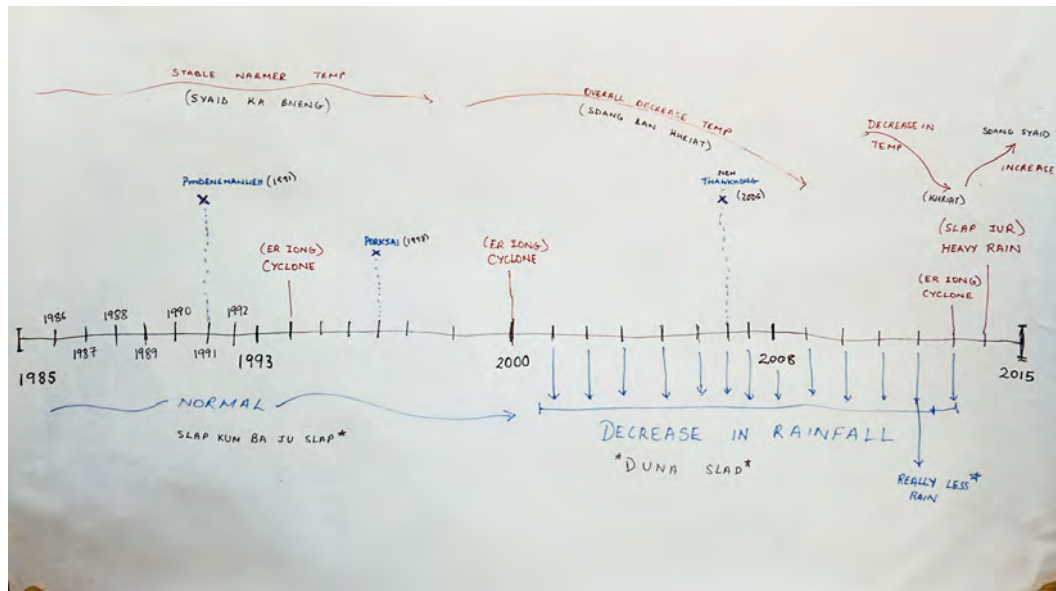 STABLE WARMER TEMP
(SYAID KA BNENG)
OVERALL DECREASE TEMP
(SDANG BAN KHRIAT)
DECREASE IN
TEMP
SDANG SYAID
INCREASE
(KHRIAT)
PYNDENGMANLIEH (1991)
NEH
THAWKHONG
(2006)
(ER IONG)
CYCLONE
PORKSAI (1997)
(ER IONG)
CYCLONE
(SLAP JUR)
HEAVY RAIN
(ER IONG)
CYCLONE
1986
1988
1990
1992
1987
1989
1991
1993
1985
2000
2008
2015
NORMAL
SLAP KUM BA JU SLAP*
DECREASE IN RAINFALL
*DUNA SLAP*
REALLY LESS*
RAIN